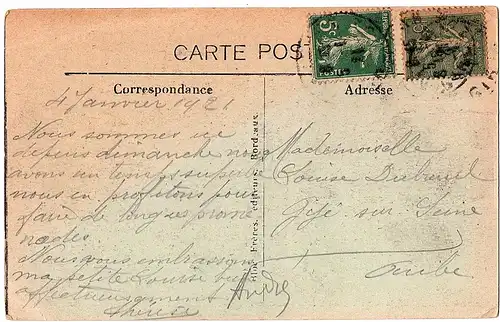 CARTE POST
5c
POSTES
Correspondance
Adresse
4 Janvier 1921
Nous sommes ici
depuis dimanche nous
avons un temps superbe
nous en profitons pour
faire de longues prome
nades
Nous vous embrassons
ma petite Louise bien
affectueusement
Thérèse
André
Bloc Frères, éditeurs, Bordeaux.
Mademoiselle
Louise
sur Seine
Aube